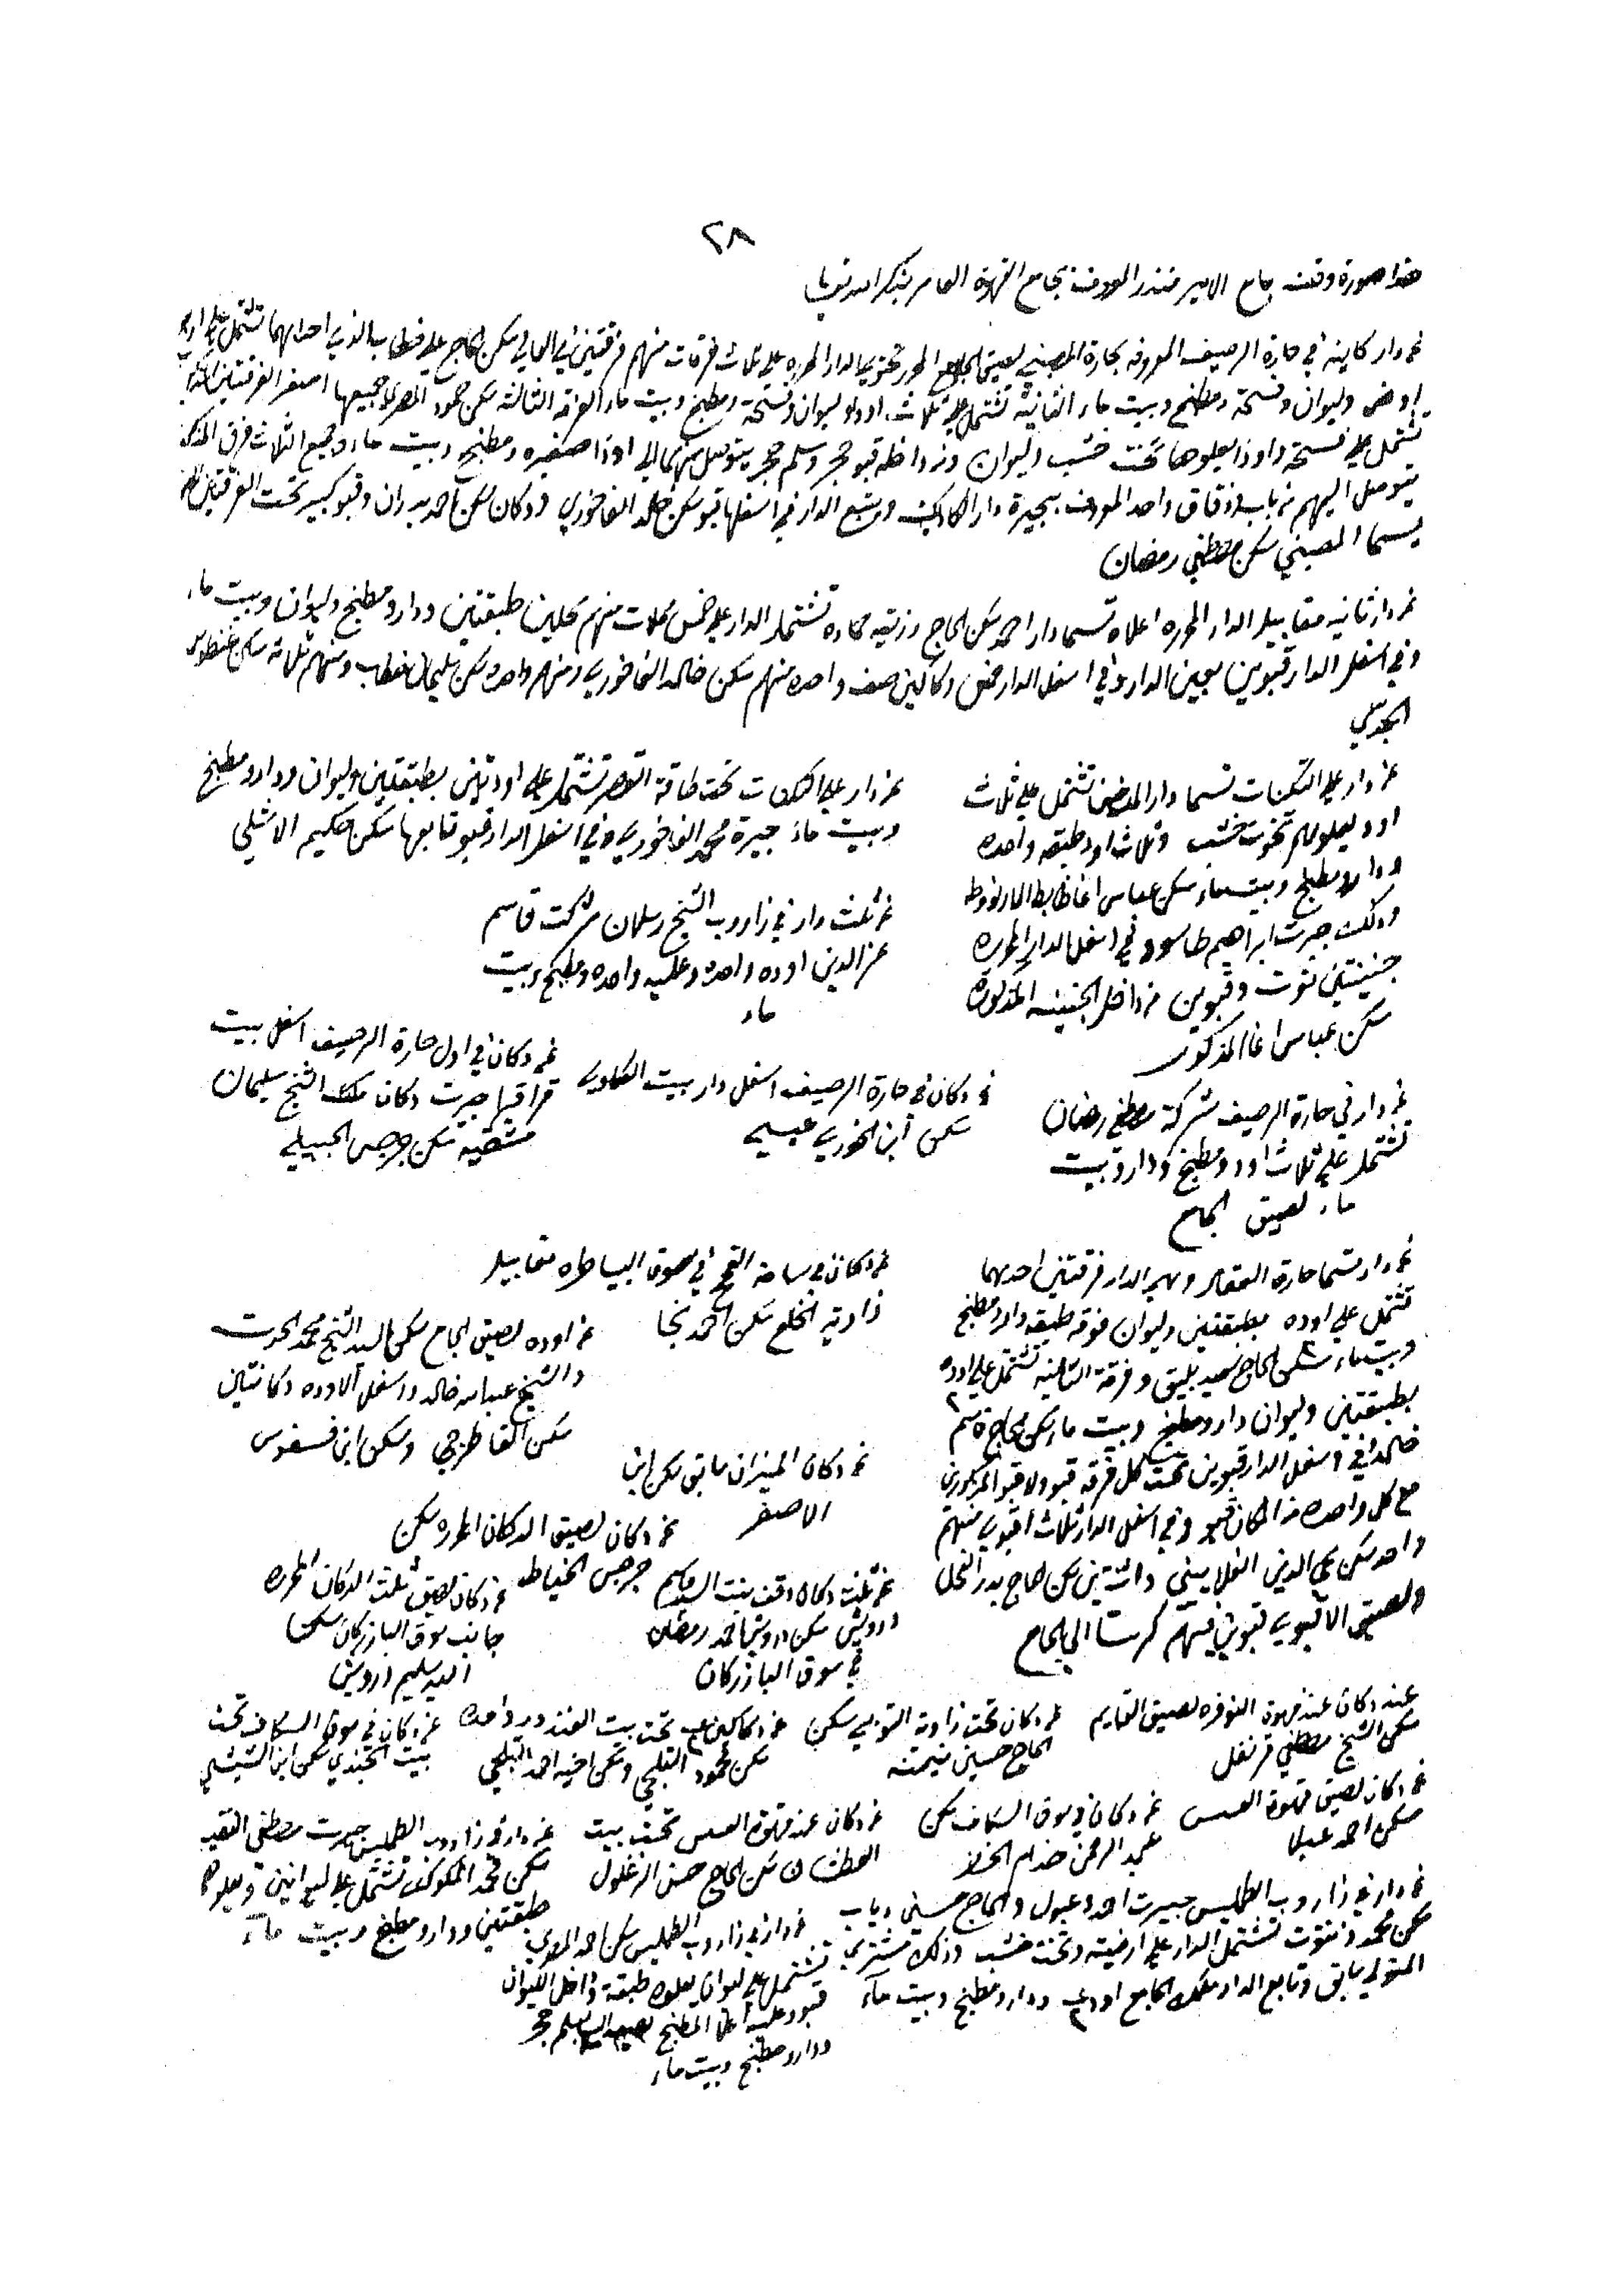 ٢٨
هذا صورة وقف جامع الامير منذر المعروف بجامع القهوة العامر بذكر الله تعالى
عن دار كاينه في حارة الرصيف المعروفه بحارة المصبني لصيق الجامع المحرر تحتوي الدار المحرره على ثلاث فرقات منهم فرقتين في العالي سكن الحاج علي قطاب الذي احداهما تشتمل على اربع
اوض وليوان وفسحة ومطبخ وبيت ماء الثانية تشتمل على ثلاث اود وليوان وفسحة ومطبخ وبيت ماء الفرقه الثالثه سكن حمود المصري جميعها اسفل الفرقتين
تشتمل على فسحة واوذا يعلوها تخت خشب وليوان ومن داخله قبو حجر وسلم حجر يتوصل منهما الى اوذا صغيره ومطبخ وبيت ماء وجميع الثلاث فرق
يتوصل اليهم من باب زقاق واحد المعروف بجيرة دار ويتبع الدار في اسفلها قبو سكن خالد الفاخوري ودكان سكن احمد بدران وقبو كبير تحت الفرقتين
يسما المصبني سكن مصطفى رمضان
عن دار ثانيه مقابيل الدار المحرره اعلاه تسما دار احمد سكن الحاج رزقيه حماده تشتمل الدار على خمس محلات منهم محلين طبقتين ودار ومطبخ وليوان وبيت ماء
وفي اسفل الدار قبوين وفي اسفل الدار خمس دكاكين صف واحد منهم سكن خالد الفاخوري ومنهم واحده سكن سليمان خطاب ومنهم ثلاثة سكن غنطوس
الجديلي
عن دار على الثكنات تسما دار تشتمل على ثلاث
اود يعلوهم تخوت خشب وثلاث اود طبقه واحده
ودار ومطبخ وبيت ماء سكن عباس اغا ظابط الارنؤوط
وذلك جيرت ابراهيم طاسو وفي اسفل الدار المحرره
جنينتين توت وقبوين من داخل الجنينه المذكوره
سكن عباس اغا المذكور
عن دار على الثكنات تحت طاقة القصر تشتمل على اودتين بطبقتين وليوان ودار ومطبخ
وبيت ماء جيرة محمد الفاخوري وفي اسفل الدار قبو تابعها سكن حكيم الاشلي
عن ثلث دار في زاروب الشيخ رسلان شركت قاسم
عز الدين اوده واحده وعليه واحده ومطبخ وبيت
ماء
عن دكان في حارة الرصيف اسفل دار بيت
سكن ابن الخوري عيسى
عن دكان في اول حارة الرصيف اسفل بيت
قراقيرا جيرت دكان ملك الشيخ سليمان
مشقيه سكن جرجس الجبيلي
عن دار في حارة الرصيف شركة مصطفى رمضان
تشتمل على ثلاث اود ومطبخ ودار وبيت
ماء لصيق الجامع
عن دار تسما حارة وهي الدار فرقتين احديهما
تشتمل على اوده بطبقتين وليوان فوقه طبقه ودار ومطبخ
وبيت ماء سكن الحاج سعيد بليق وفرقة الثانيه تشتمل على اوده
بطبقتين وليوان دار ومطبخ وبيت ماء سكن الحاج قاسم
خالد وفي اسفل الدار قبوين تحت كل فرقه قبو
مع كل واحده من المكان قبو وفي اسفل الدار ثلاث اقبوي منهم
واحد سكن محي الدين الغلاييني واثنتين سكن الحاج بدر النحل
ولصيق الاقبوي قبوين منهم كرستا الى الجامع
عن دكان في ساحة القمح في سوق البياطره مقابيل
زاوية الخلع سكن احمد نجا
عن اوده لصيق الجامع سكن السيد الشيخ محمد الحوت
والشيخ عبد الله خالد واسفل الاوده دكانتين
سكن القاطرجي وسكن ابن
عن دكان الميزان سابق سكن ابن
الاصفر
عن دكان لصيق الدكان المحرره سكن
جرجس الخياط
عن ثلث دكان وقف بنت السيد
درويش سكن درويش احمد رمضان
في سوق البازركان
عن دكان لصيق ثلث الدكان المحرره
جانب سوق البازركان سكن
السيد سليم درويش
عن دكان عند قهوة النوفره لصيق القايم
سكن الشيخ مصطفى قرنفل
عن دكان تحت زاوية التوبي سكن
الحاج حسين منيمنه
عن دكاكين تحت بيت الفندور واحده
سكن محمود البلعجي وسكن اخيه احمد البلعجي
عن دكان في سوق السكاف تحت
بيت الجندي سكن ابن الشيشلي
عن دكان لصيق قهوة العسس
سكن احمد عبلا
عن دكان في سوق السكاف سكن
عبد الرحمن ضرام الخلاز
عن دكان عند قهوة العسس تحت بيت
العطشان سكن الحاج حسن الزغلول
عن دار في زاروب الطمليس جيرت مصطفى النقيب
سكن محمد المكوك تشتمل على ليوانين ويعلوها
طبقتين ودار ومطبخ وبيت ماء
عن دار في زاروب الطمليس جيرت احمد عبول والحاج حسين دياب
سكن محمد زنتوت تشتمل الدار على ارضيه وتخت خشب وذلك مشترى
المتولي سابق وتابع الدار ملك الجامع ودار ومطبخ وبيت ماء
عن دار في زاروب الطمليس سكن احمد المصري
تشتمل على ليوان يعلوه طبقة وداخل الليوان
قبو وعليه اعلا المطبخ حجر
ودار ومطبخ وبيت ماء